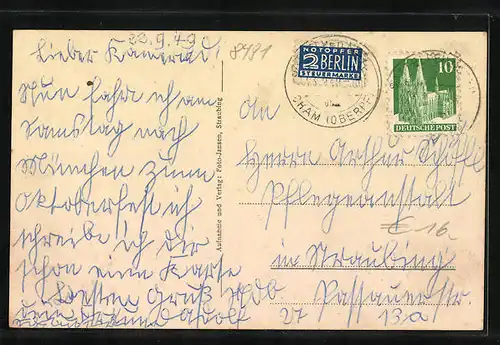 22.9.49
Lieber Kamerad!
Nun fahr ich am
Samstag nach
München zum
Oktoberfest ich
schreibe ich dir
schon eine Karte
Besten Gruß
dein Adolf
8481
Aufnahme und Verlag: Foto-Jansen, Straubing
NOTOPFER
2 BERLIN
STEUERMARKE
CHAM (OBERPF
10
DEUTSCHE POST
An
Herrn Arthur
Pflegeanstalt
€ 16.
in Straubing
Passauerstr.
27 13a